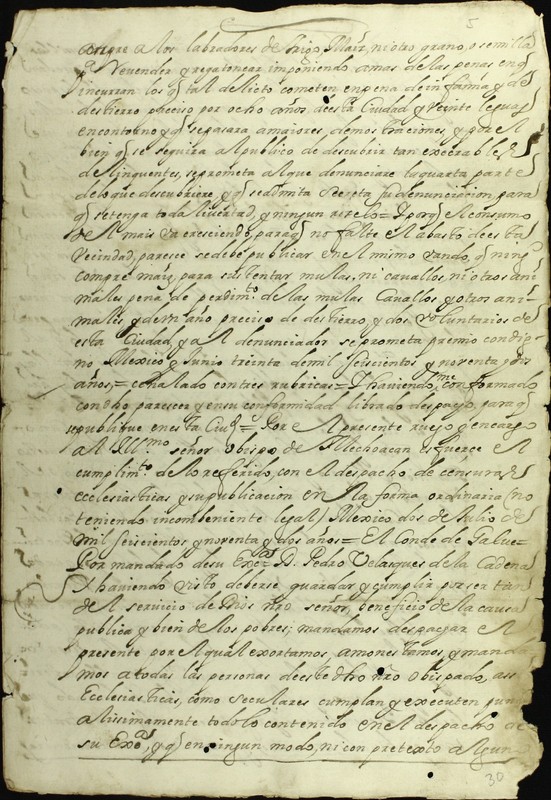 5
congre a los labradores de trigo, Maiz, ni otro grano, o semilla
pa Revender y regatonear imponiendo a mas de las penas en q̃
incurran los q̃ tal delicto cometen en pena de infamia y de
destierro preciso por ocho años. de esta Ciudad, y veinte leguas
en contorno y q̃ se pasara a maiores demostraciones, y por el
bien q̃ se seguira al publico de descubrir tan execrables
delinquentes, se prometa al que denunciare la quarta parte
de lo que descubriere, y q̃ se admita secreta su denunciacion para
q̃ se tenga toda livertad, y ningun rezelo= I porq̃ el consumo
de el mais va cresciendo, paraq̃ no falte el abasto de esta
Vecindad, parese se debe publicar en el mismo vando, q̃ ning.º
compre maiz, para sustentar mulas, ni cavallos, ni otros ani
males pena de perdim.to de las mulas Cavallos y otros ani
males, y de un año preciso de destierro, y dos voluntarios de
esta Ciudad, y al denunciador se prometa premio condig
no Mexico y Junio treinta de mil seiscientos y noventa y dos
años,= señalado con tres rubricas= I haviendo me conformado
con dho parescer y en su conformidad librado despacho, para q̃
se publique en esta Ciu.d= Por el presente ruego y encargo
al Ill.mo señor obispo de Mechoacan esfuerce el
cumplim.to de lo referido, con el despacho de censuras
ecclesiasticas y su publicacion en la forma ordinaria (no
teniendo incombeniente legal) Mexico dos de Julio de
mil seiscientos y noventa y dos años= El Conde de Galve=
Por mandado de su Ex.ca D. Pedro Velasques de la Cadena
I haviendo visto deberse guardar y cumplir por ser tan
del servicio de Dios ñro señor, beneficio de la causa
publica y bien de los pobres; mandamos despachar el
presente por el qual exortamos, amonestamos, y manda
mos a todas las personas de este dho ñro obispado, assi
Ecclesiasticas, como seculares cumplan y executen punt
ualissimamente todo lo contenido en el despacho de
su Ex.ca, y q̃ en ningun modo, ni con pretexto algun
30